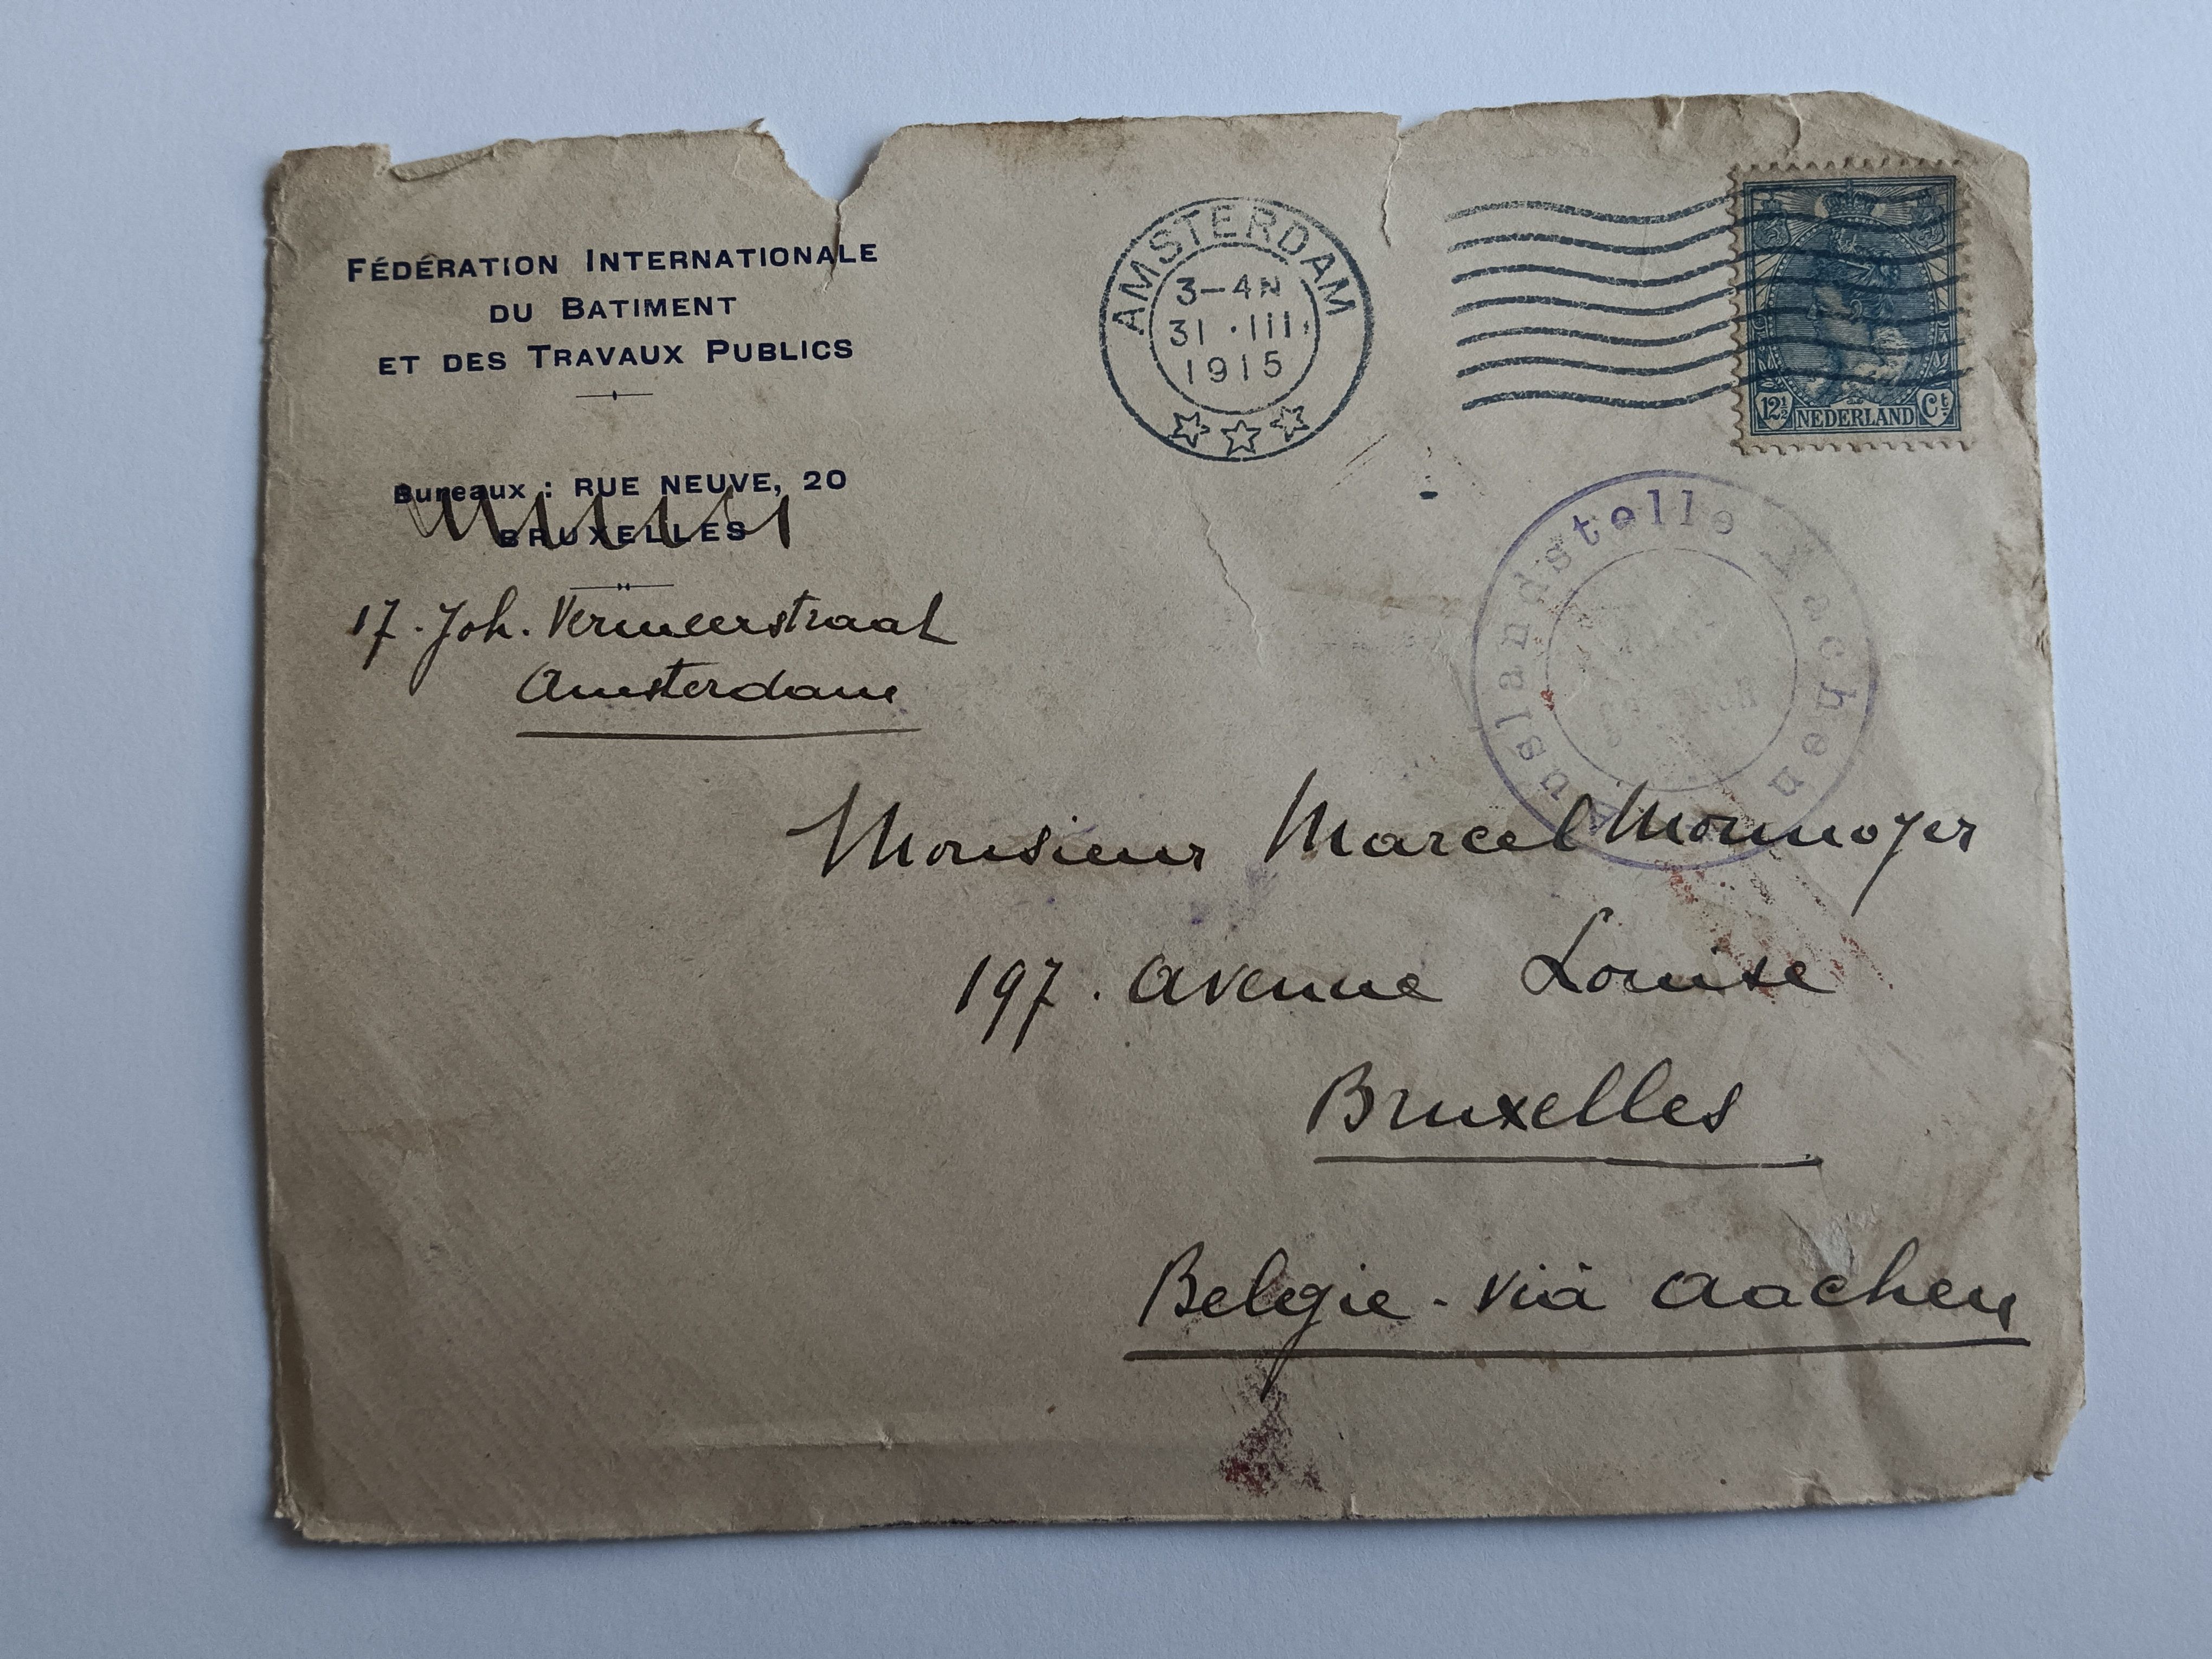 FÉDÉRATION INTERNATIONALE
DU BATIMENT
ET DES TRAVAUX PUBLICS
Bureaux : RUE NEUVE, 20
BRUXELLES
17. Joh. Vermeerstraat
Amsterdam
AMSTERDAM
3-4N
31 · III
1915
12½ NEDERLAND Ct
Auslandstelle Aachen
Monsieur Marcel Monnoyer
197. avenue Louise
Bruxelles
Belgie - via Aachen